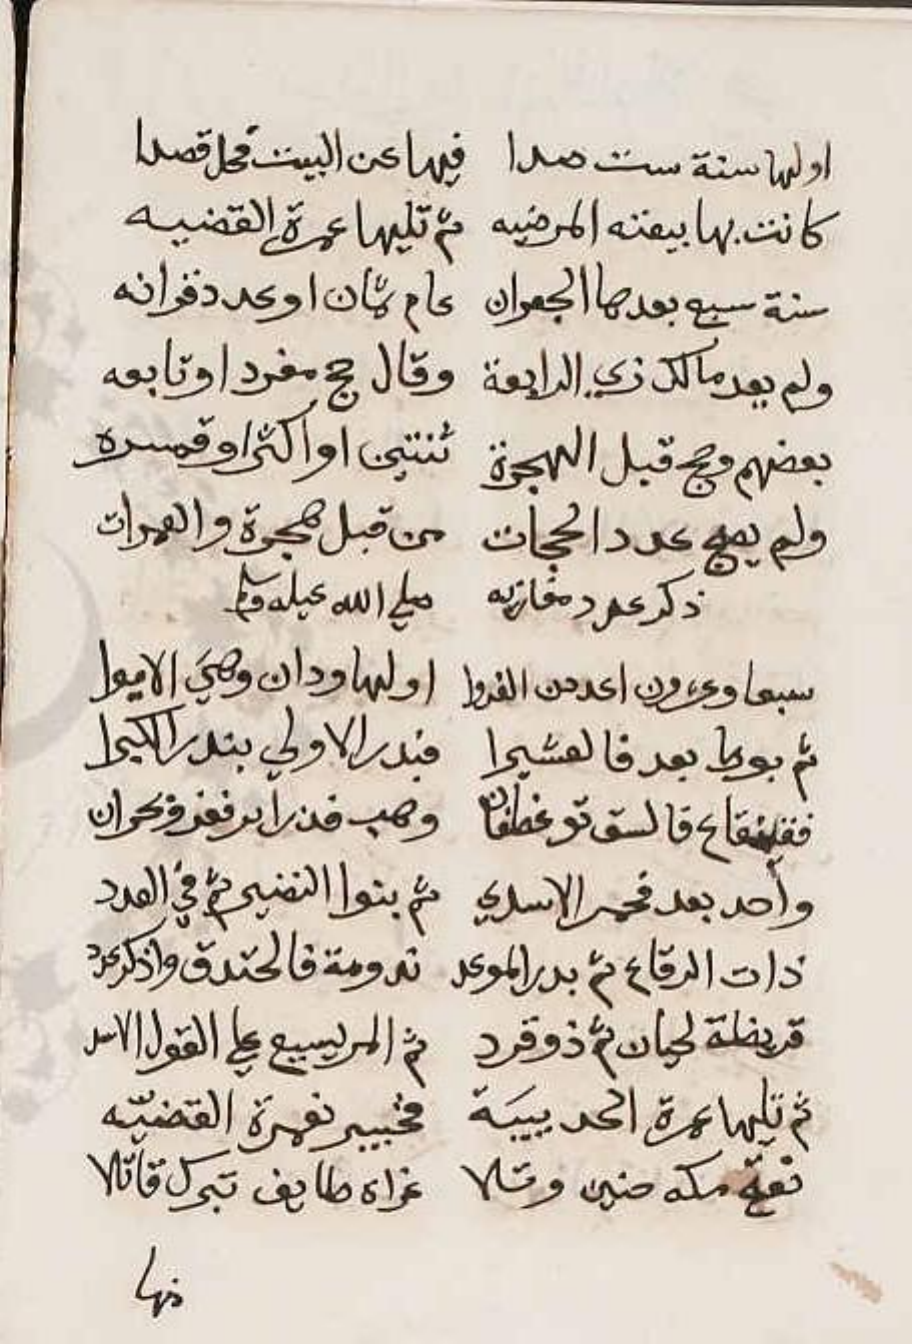 اولها سنة ست صدا فيها عن البيت فحل قصدا
كانت بها بيعته المرضيه ثم تليها عمرة القضيه
سنة سبع بعدها الجعران عام ثمان او عدد قرانه
ولم يعد مالك ذي الرابعة وقال حج مفرد او تابعه
بعضهم وحج قبل الهجرة ثنتين او اكثر او فمسره
ولم يصح عدد الحجات من قبل هجرة والعمرات
ذكر عدد مغازيه صلي الله عيله وسلم
سبعا وعشرون اعددن الغزوا اولها ودان وهي الابوا
ثم بوط بعد فالعشيرا فبدر الاولي بتدر الكبرا
فقينقاع فالسق تو غطفان وهب فذر امر فغزو بحران
واحد بعد فحمر الاسدي ثم بنوا النضير ثم في العدد
ذات الرقاع ثم بدر الموعد ندومة فالخندق واذكر عد
قريظة لحيان ثم ذو قرد ثم المريسيع علي القول الاسد
ثم تليها عمرة الحديبيَة فخيبير نعمرة القضيّه
نفع مكه حنين وتلا غزاه طايف تبرك قاتلا
نها